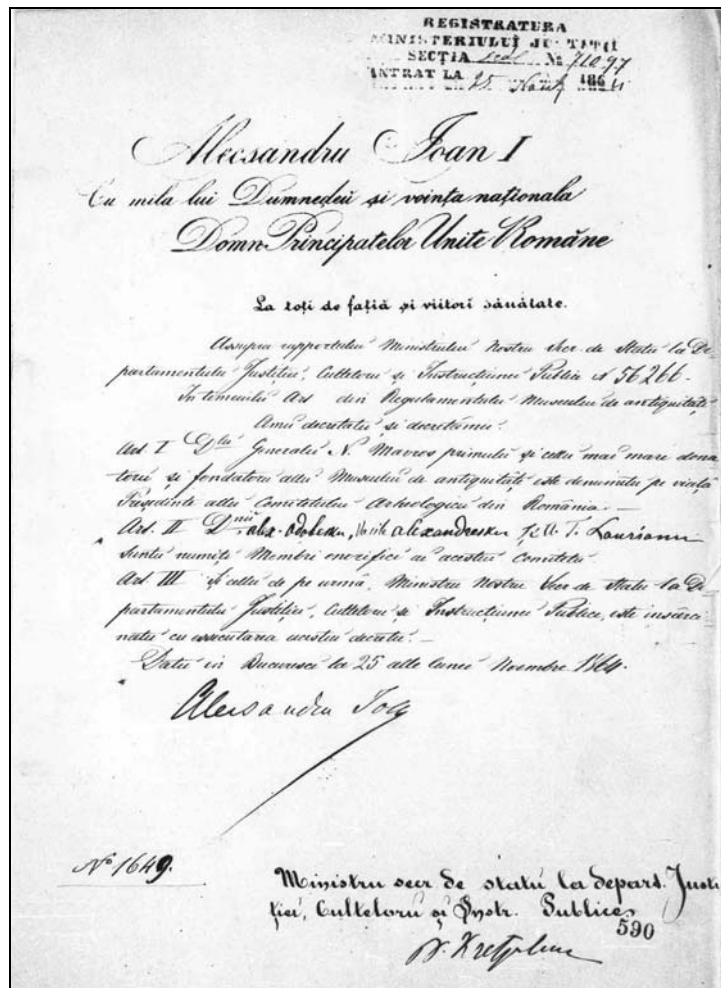 REGISTRATURA
MINISTERIULUĬ JUSTIŢIĬ
SECŢIA Scól № 71097
INTRAT LA 25 1864
Alecsandru Ioan I
Cu mila lui Dumnedeŭ si vointa naţionala
Domn Principatelor Unite Române
La toţi de faţiă şi viitorĭ sănătate.
Asupra rapportului Ministrului Nostru Secr. de Statu la De
partamentulu Justiţiei, Culteloru şi Instrucţiunei Publice N 56266.
In temeiulu Art din Regulamentulu Museului de antiquităţi
Amu decretatu si decretămu:
Art. I Dlui Generalu N. Mavros primulu şi cellu mai mare dona
toru şi fondatoru allu Museului de antiquităţi este denumitu pe viaţă
Preşedinte allu Comitetului Archeologicu din România.—
Art. II Dnii alex. odobescu, Vasile alexandrescu şi A. T. Laurianu
suntu numiţi Membri onorifici ai acestui Comitetu.
Art. III şi cellu de pe urmă, Ministru Nostru Secr de Statu la De
partamentulu Justiţiei, Culteloru şi Instrucţiunei Publice, este insărci
natu cu essecutarea acestui decretu.—
Datu in Bucuresci la 25 alle lunei Noembre 1864.
Alesandru Ioan
№ 1649.
Ministru secr de statu la depart. Justi
ţiei, Culteloru şi Instr. Publice
590